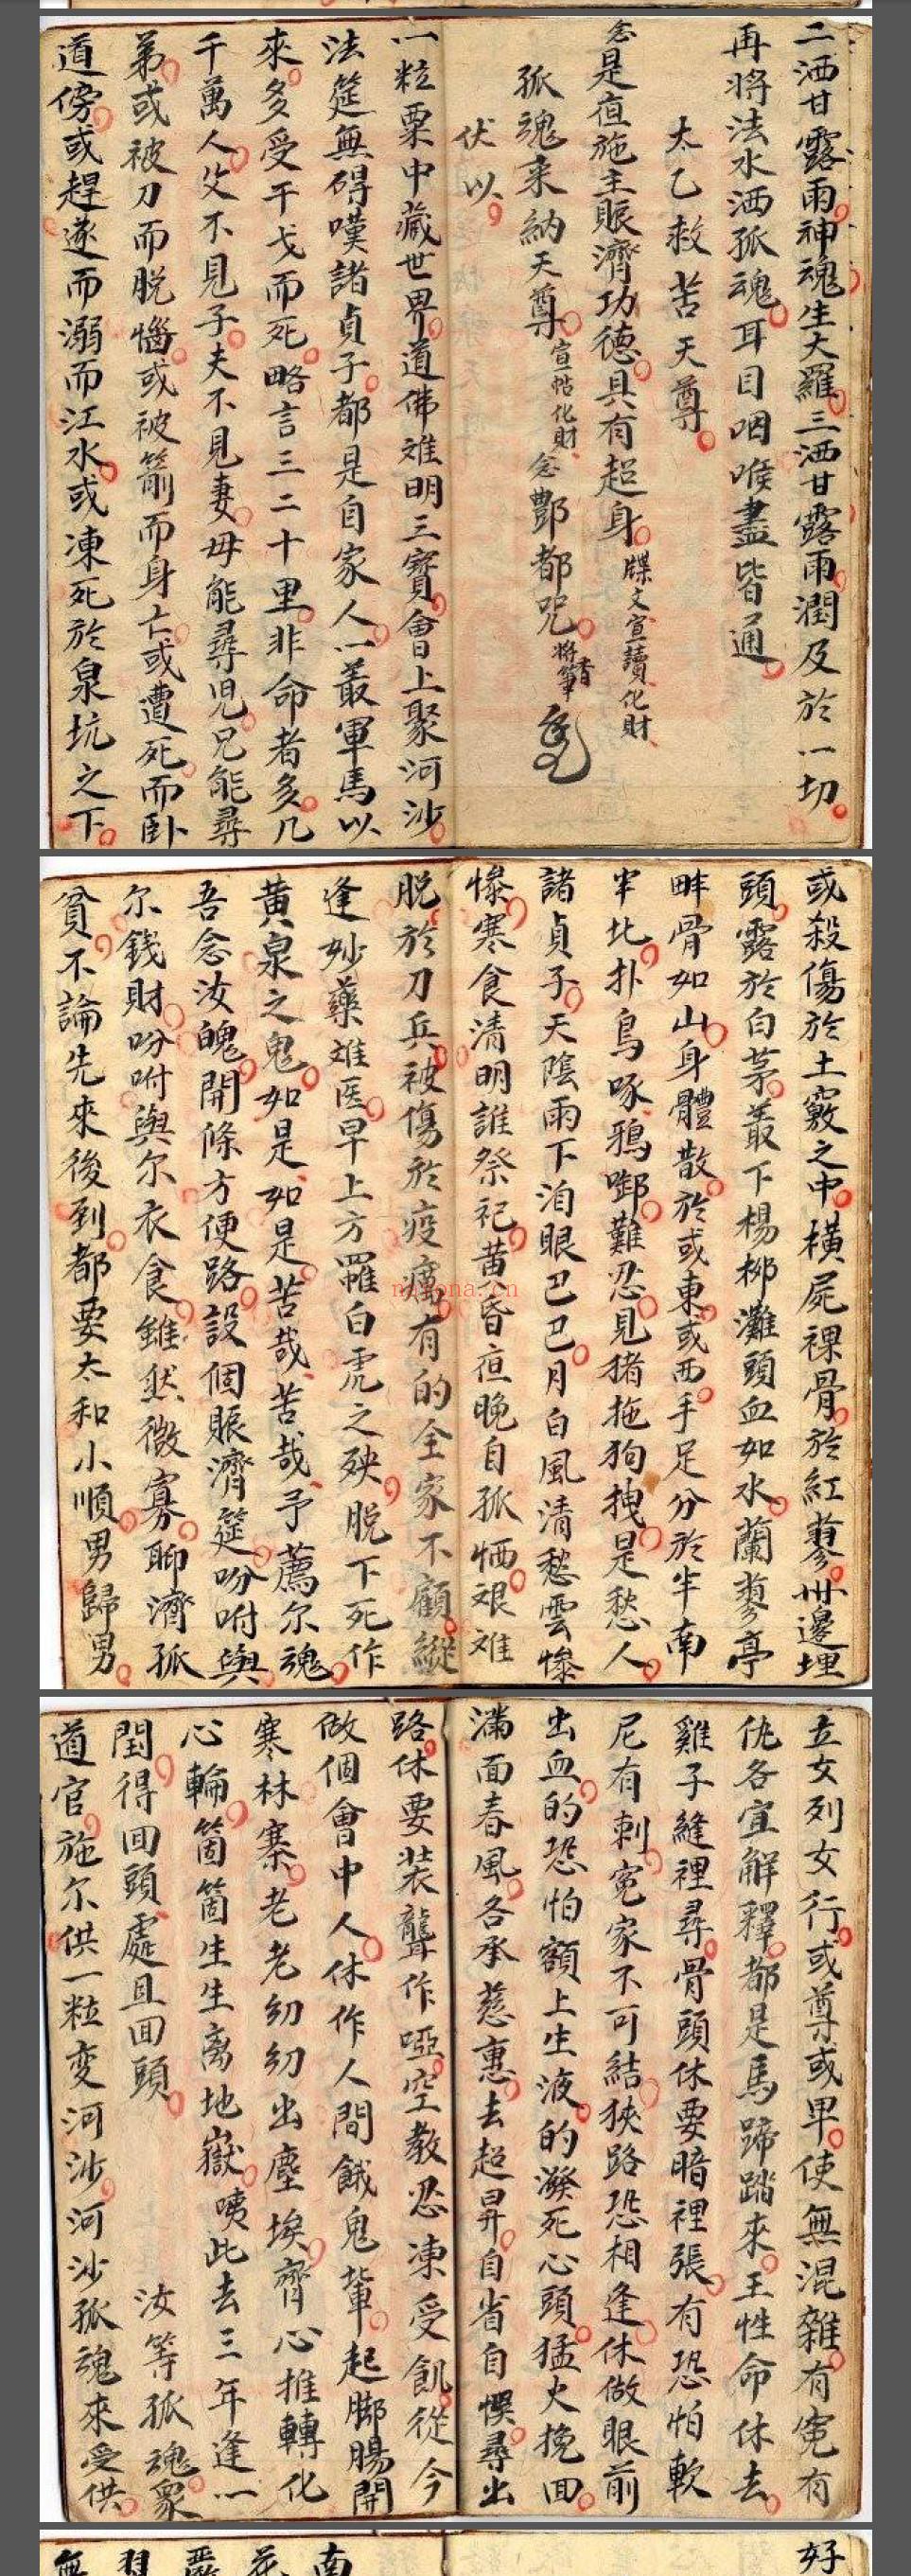 二洒甘露雨神魂生大羅三洒甘露雨潤及於一切
再將法水洒孤魂耳目咽喉盡皆通
太乙救苦天尊
念是夜施主賬濟功德具有超身牒文宣讀化財
孤魂来納天尊宣帖化財念酆都咒將筆書
伏以
一粒粟中藏世界道佛难明三寶會上聚河沙
法筵無碍嘆諸貞子都是自家人一叢軍馬以
來多受干戈而死略言三二十里非命者多几
千萬人父不見子夫不見妻母能尋児兄能尋
弟或被刀而脱惱或被箭而身亡或遭死而卧
道傍或趕逐而溺而江水或凍死於泉坑之下
或殺傷於土竅之中橫屍裸骨於紅蓼州邊埋
頭露於白茅叢下楊柳灘頭血如水蘭蓼亭
畔骨如山身體散於或東或西手足分於半南
半北扑鳥啄鴉啣難忍見猪拖狗拽是愁人
諸貞子天陰雨下泪眼巴巴月白風清愁雲慘
慘寒食清明誰祭祀黄昏夜晚自孤恓艰难
脱於刀兵被傷於疫癘有的全家不顧縱
逢妙藥难医早上方羅白虎之殃脱下死作
黄泉之鬼如是如是苦哉苦哉予薦尔魂
吾念汝魄開條方便路設個賬濟筵吩咐與
尔錢財吩咐與尔衣食雖然微寡聊濟孤
貧不論先來後到都要太和小順男歸男
立女列女行或尊或卑使無混雜有寃有
仇各宜解釋都是馬蹄踏來王性命休去
雞子縫裡尋骨頭休要暗裡張有恐怕軟
尼有刺寃家不可結狹路恐相逢休做眼前
出血的恐怕額上生液的潑死心頭猛火挽回
滿面春風各承慈惠去超昇自省自悮尋出
路休要裝聾作啞空教忍凍受飢從今
做個會中人休作人間餓鬼輩起脚腸開
寒林寨老老幼幼出塵埃齊心推轉化
心輪箇箇生生离地嶽咦此去三年逢一
閏得回頭處且回頭 汝等孤魂衆
道官施尔供一粒変河沙河沙孤魂來受供
好
南